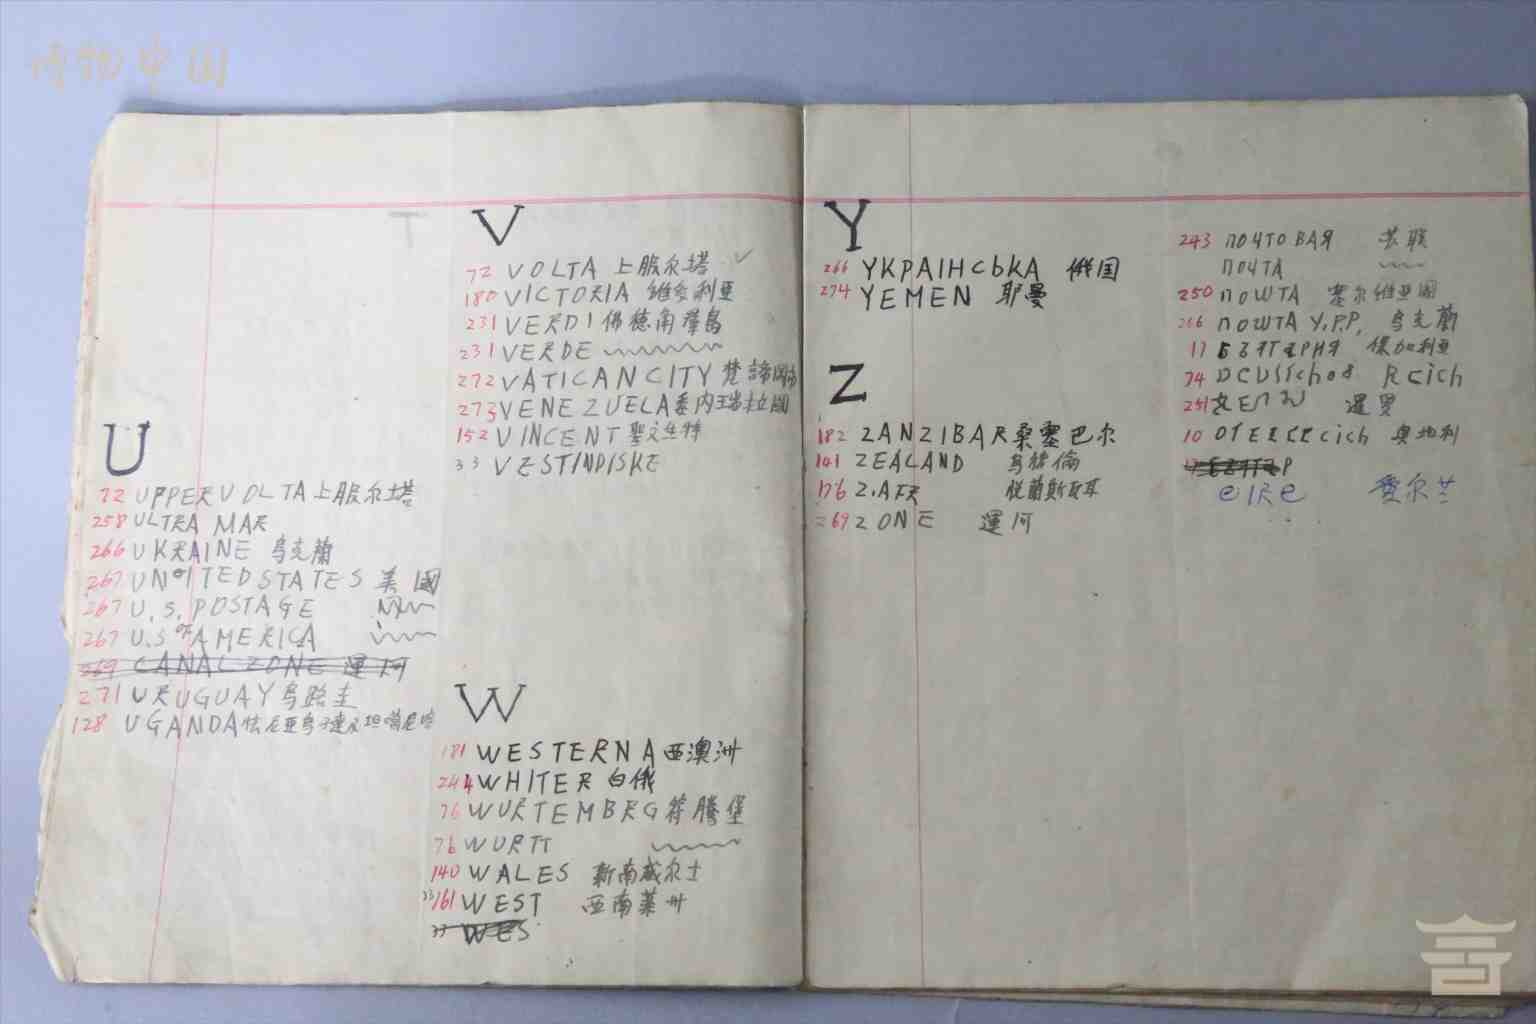 博物中国
U
72 UPPER VOLTA 上服尔塔
258 ULTRA MAR
266 UKRAINE 乌克蘭
267 UNITED STATES 美國
267 U.S. POSTAGE
267 U.S of AMERICA
269 CANAL ZONE 運河
271 URUGUAY 烏路圭
128 UGANDA
T
V
72 VOLTA 上服尔塔
180 VICTORIA 維多利亚
231 VERDI 佛德角羣島
231 VERDE
272 VATICAN CITY 梵諦岡
273 VENEZUELA 委内瑞拉國
152 VINCENT 聖文生特
33 VESTINDISKE
W
181 WESTERN A 西澳洲
244 WHITE R 白俄
76 WURTEMBRG 符騰堡
76 WURTT
140 WALES 新南威尔士
33 161 WEST 西南菲州
33 WES
Y
266 YKPAIHCbKA 俄国
274 YEMEN 耶曼
Z
182 ZANZIBAR 桑塞巴尔
141 ZEALAND 烏絲倫
176 Z.AFR 脱蘭斯瓦耳
269 ZONE 運河
243 ПОЧТОВАЯ 苏联
ПОЧТА
250 ПОШТА 塞尔維亚國
266 ПОШТА У.Р.Р. 乌克蘭
17 保加利亚
74 Reich
251 暹罗
10 奥地利
eiRe 愛尔兰